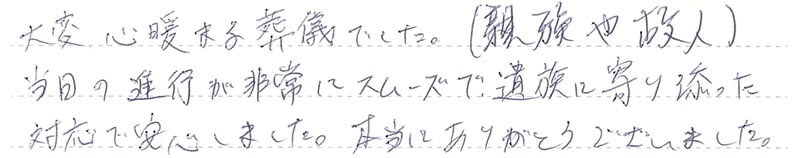 大変心暖まる葬儀でした。(親族や故人)
当日の進行が非常にスムーズで遺族に寄り添った
対応で安心しました。本当にありがとうございました。